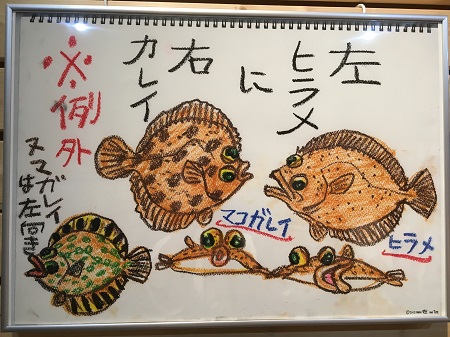 左
ヒラメ
に
右
カレイ
※例外
ヌマガレイ
は左向き
マコガレイ
ヒラメ